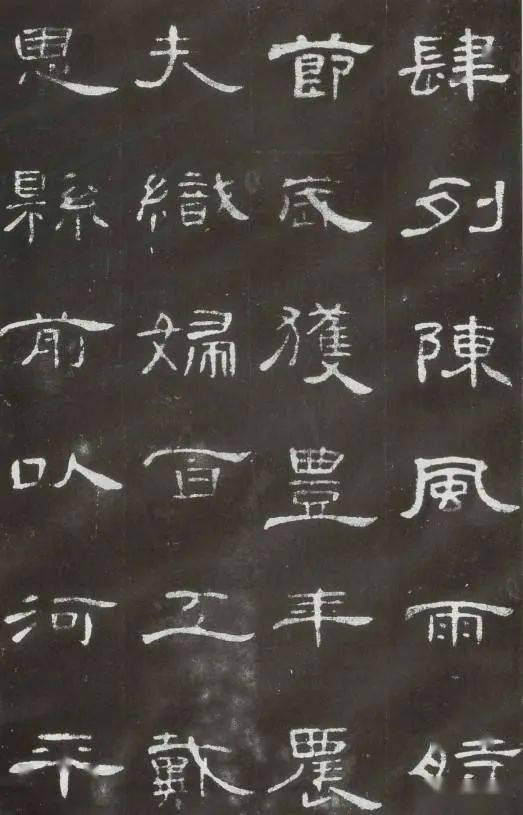 肆列陳風雨時
節歲獲豐年農
夫織婦百工戴
恩縣前以河平